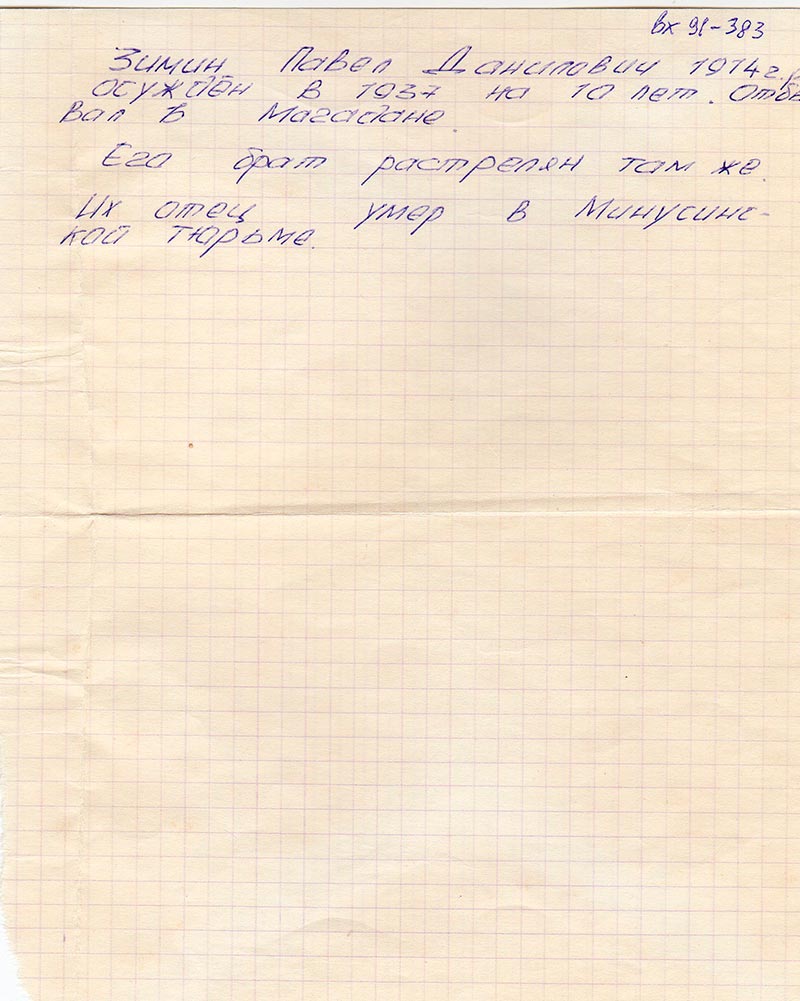 вх 91-383
Зимин Павел Данилович 1914г.р
осуждён в 1937 на 10 лет. Отбы
вал в Магадане.
Его брат растрелян там же.
Их отец умер в Минусинс-
кой тюрьме.